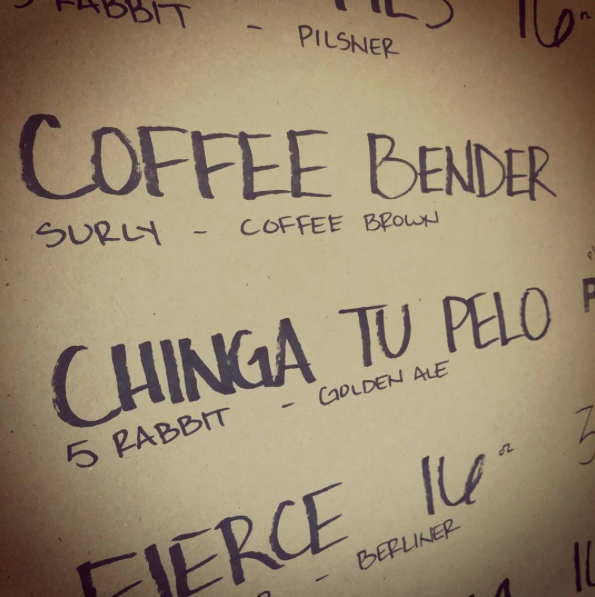 5 RABBIT - PILSNER 16 oz
COFFEE BENDER
SURLY - COFFEE BROWN
CHINGA TU PELO
5 RABBIT - GOLDEN ALE
FIERCE 16 oz
- BERLINER